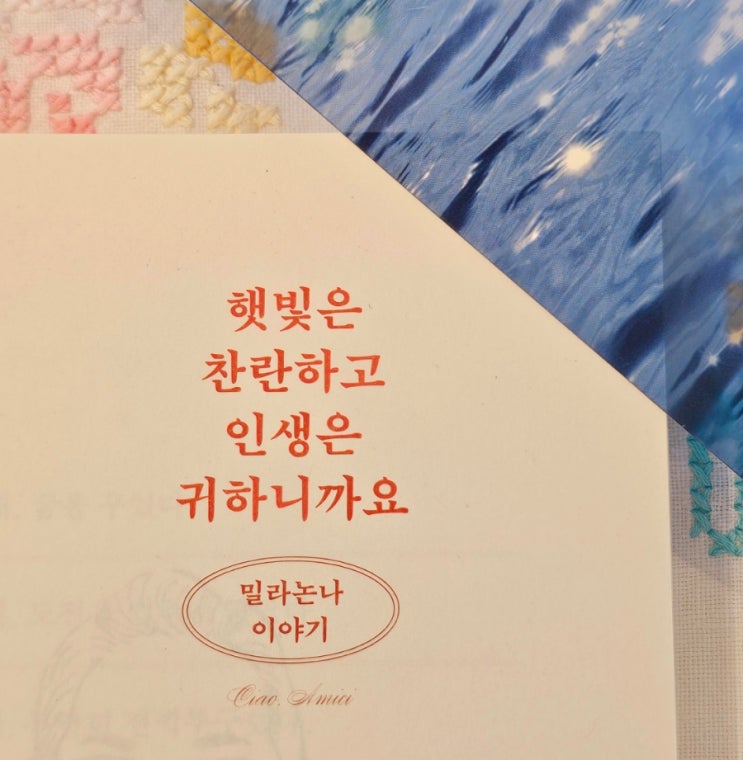 햇빛은
찬란하고
인생은
귀하니까요
밀라논나
이야기
Ciao, Amici